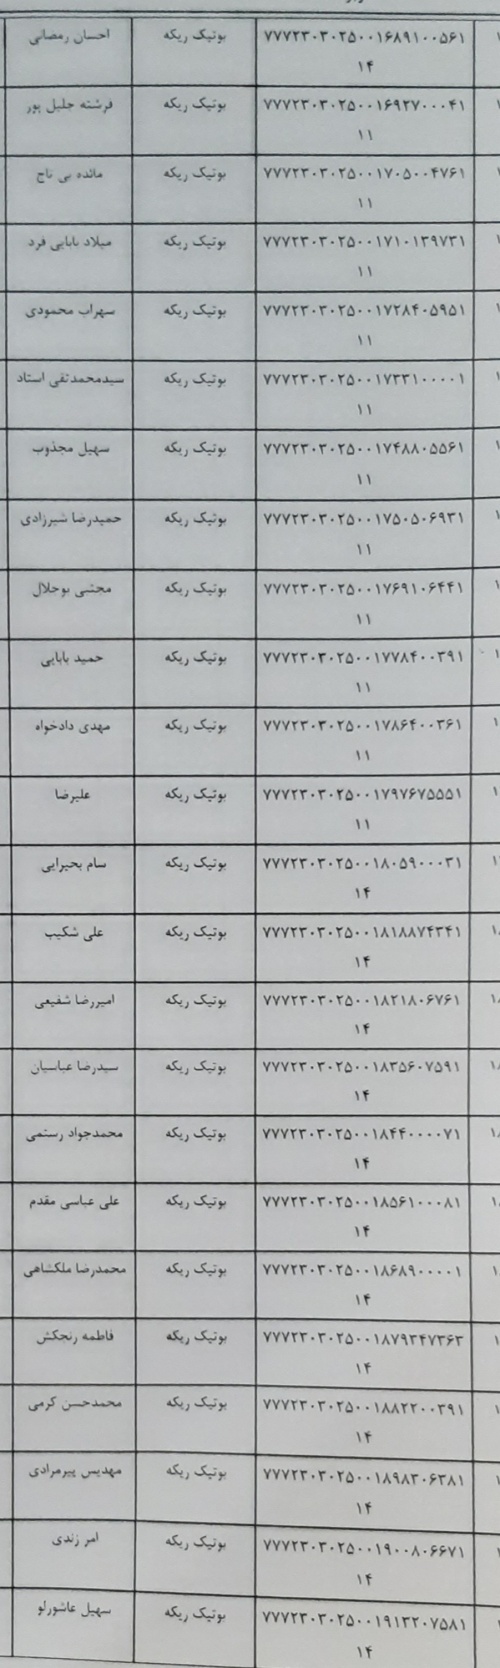 ۷۷۷۲۳۰۳۰۲۵۰۰۱۶۸۹۱۰۰۵۶۱ بوتیک ریکه احسان رمضانی
۱۴
۷۷۷۲۳۰۳۰۲۵۰۰۱۶۹۲۷۰۰۰۴۱ بوتیک ریکه فرشته جلیل پور
۱۱
۷۷۷۲۳۰۳۰۲۵۰۰۱۷۰۵۰۰۴۷۶۱ بوتیک ریکه مائده بی تاج
۱۱
۷۷۷۲۳۰۳۰۲۵۰۰۱۷۱۰۱۳۹۷۳۱ بوتیک ریکه میلاد بابایی فرد
۱۱
۷۷۷۲۳۰۳۰۲۵۰۰۱۷۲۸۴۰۵۹۵۱ بوتیک ریکه سهراب محمودی
۱۱
۷۷۷۲۳۰۳۰۲۵۰۰۱۷۳۳۱۰۰۰۰۱ بوتیک ریکه سیدمحمدتقی استاد
۱۱
۷۷۷۲۳۰۳۰۲۵۰۰۱۷۴۸۸۰۵۵۶۱ بوتیک ریکه سهیل مجذوب
۱۱
۷۷۷۲۳۰۳۰۲۵۰۰۱۷۵۰۵۰۶۹۳۱ بوتیک ریکه حمیدرضا شیرزادی
۱۱
۷۷۷۲۳۰۳۰۲۵۰۰۱۷۶۹۱۰۶۴۴۱ بوتیک ریکه مجتبی بوحلال
۱۱
۷۷۷۲۳۰۳۰۲۵۰۰۱۷۷۸۴۰۰۳۹۱ بوتیک ریکه حمید بابایی
۱۱
۷۷۷۲۳۰۳۰۲۵۰۰۱۷۸۶۴۰۰۳۶۱ بوتیک ریکه مهدی دادخواه
۱۱
۷۷۷۲۳۰۳۰۲۵۰۰۱۷۹۷۶۷۵۵۵۱ بوتیک ریکه علیرضا
۱۱
۷۷۷۲۳۰۳۰۲۵۰۰۱۸۰۵۹۰۰۰۳۱ بوتیک ریکه سام بحیرایی
۱۴
۷۷۷۲۳۰۳۰۲۵۰۰۱۸۱۸۸۷۴۳۴۱ بوتیک ریکه علی شکیب
۱۴
۷۷۷۲۳۰۳۰۲۵۰۰۱۸۲۱۸۰۶۷۶۱ بوتیک ریکه امیررضا شفیعی
۱۴
۷۷۷۲۳۰۳۰۲۵۰۰۱۸۳۵۶۰۷۵۹۱ بوتیک ریکه سیدرضا عباسیان
۱۴
۷۷۷۲۳۰۳۰۲۵۰۰۱۸۴۴۰۰۰۰۷۱ بوتیک ریکه محمدجواد رستمی
۱۴
۷۷۷۲۳۰۳۰۲۵۰۰۱۸۵۶۱۰۰۰۸۱ بوتیک ریکه علی عباسی مقدم
۱۴
۷۷۷۲۳۰۳۰۲۵۰۰۱۸۶۸۹۰۰۰۰۱ بوتیک ریکه محمدرضا ملکشاهی
۱۴
۷۷۷۲۳۰۳۰۲۵۰۰۱۸۷۹۳۴۷۳۶۳ بوتیک ریکه فاطمه رنجکش
۱۴
۷۷۷۲۳۰۳۰۲۵۰۰۱۸۸۲۲۰۰۳۹۱ بوتیک ریکه محمدحسن کرمی
۱۴
۷۷۷۲۳۰۳۰۲۵۰۰۱۸۹۸۳۰۶۳۸۱ بوتیک ریکه مهدیس پیرمرادی
۱۴
۷۷۷۲۳۰۳۰۲۵۰۰۱۹۰۰۸۰۶۶۷۱ بوتیک ریکه امر زندی
۱۴
۷۷۷۲۳۰۳۰۲۵۰۰۱۹۱۳۲۰۷۵۸۱ بوتیک ریکه سهیل عاشورلو
۱۴